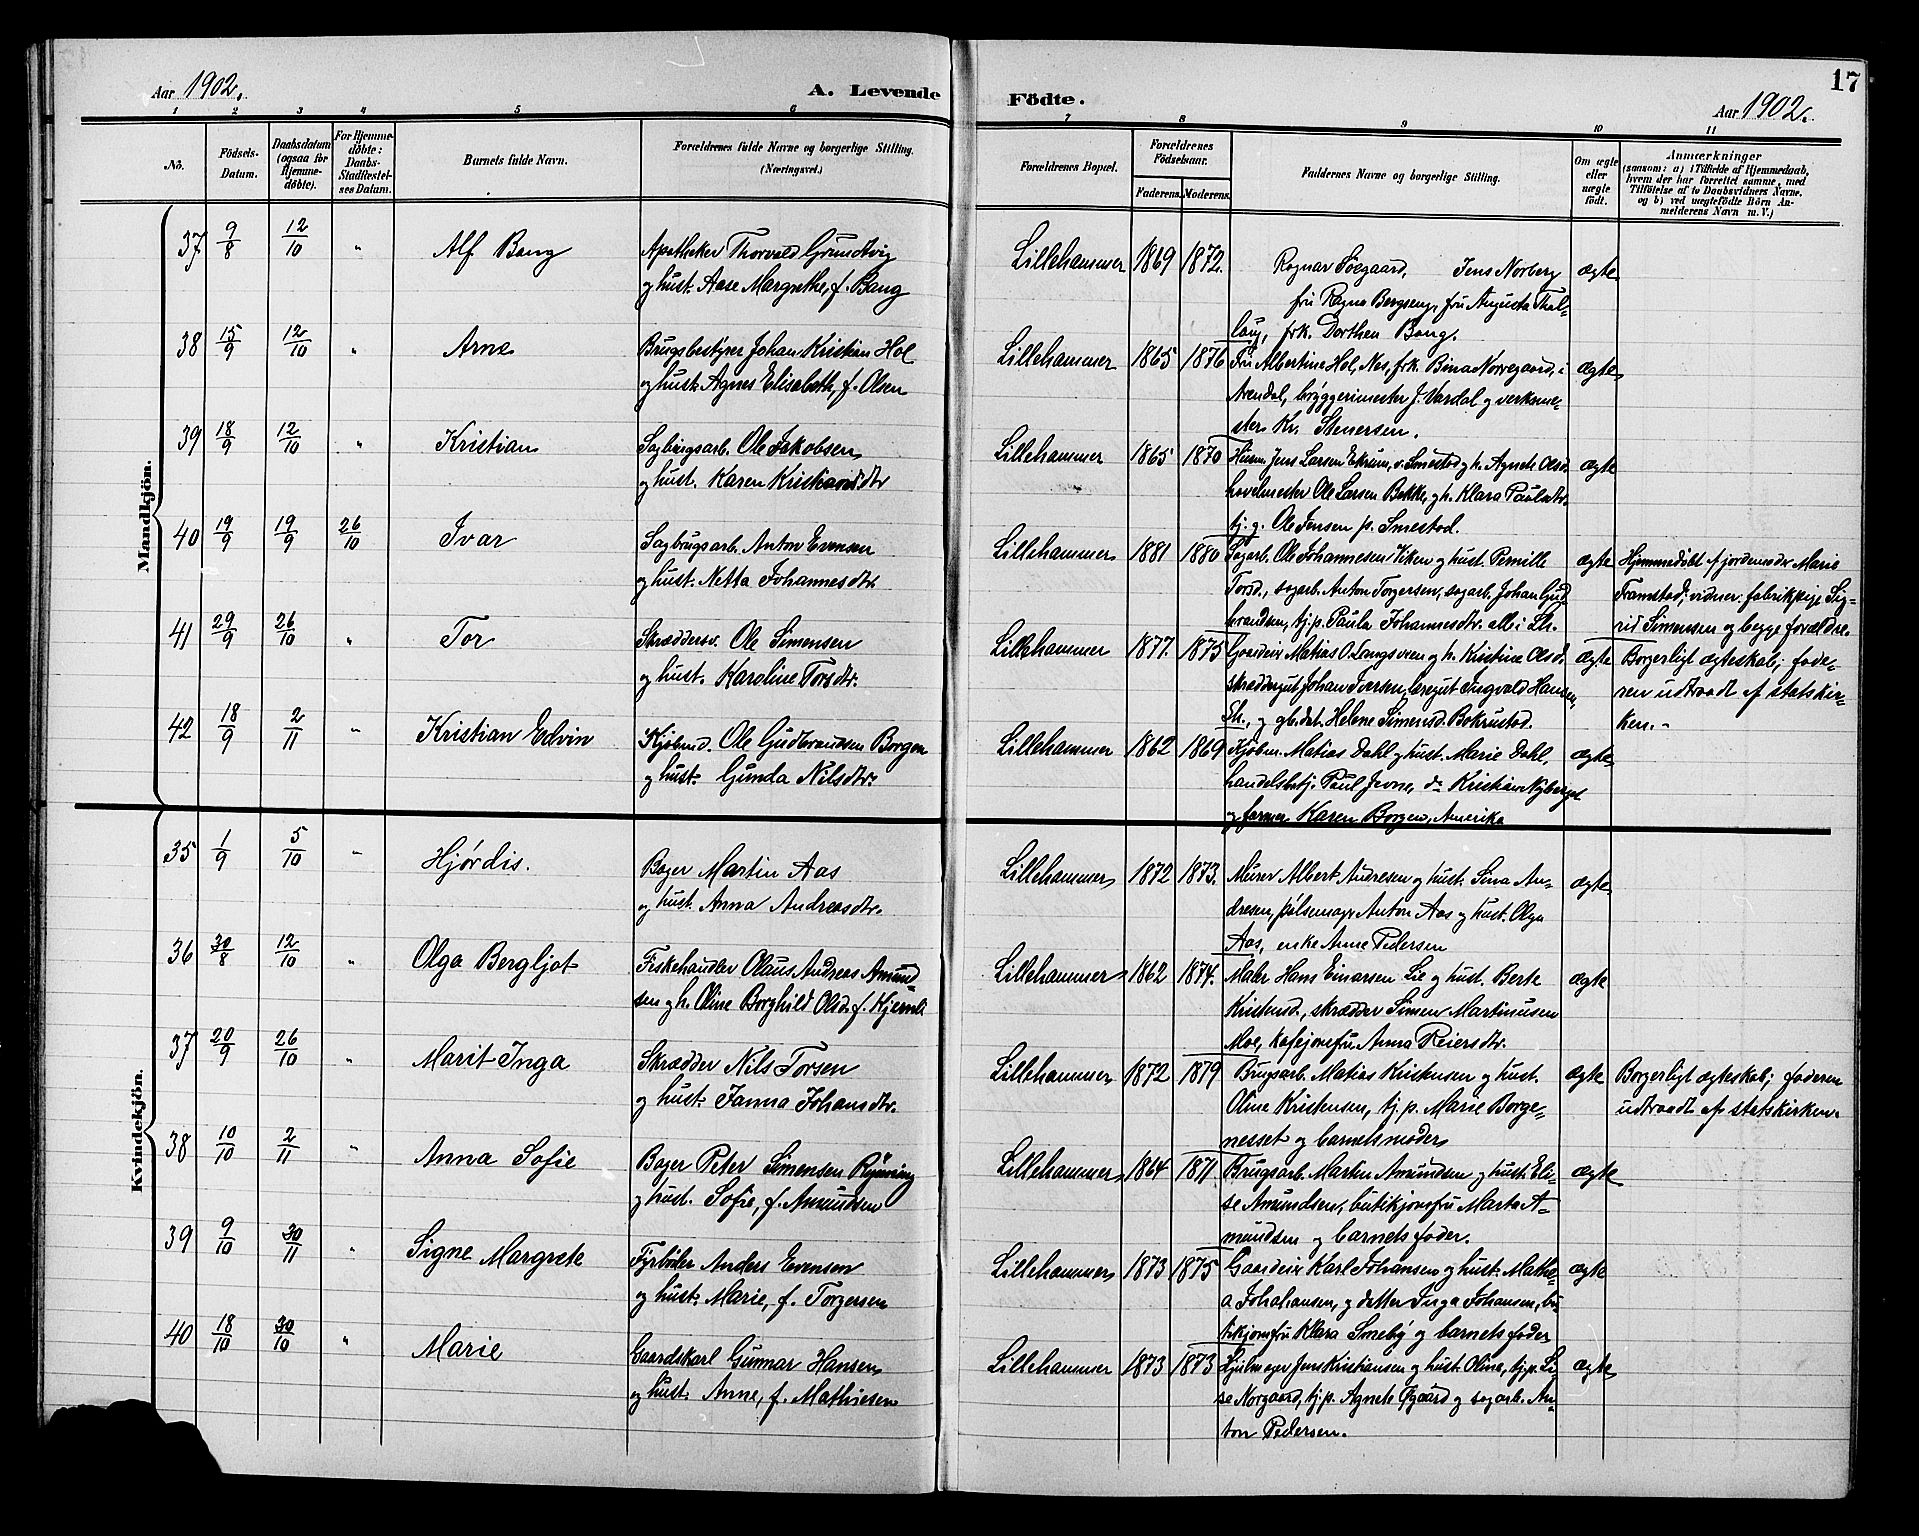 17
Aar 1902.
A. Levende
Födte.
Aar 1902.
1 2 3 4 5 6 7 8 9 10 11
No.
Födsels-
Datum.
Daabsdatum
(ogsaa for
Hjemme-
döbte).
For Hjemme-
döbte:
Daabs-
Stadfæstel-
ses Datum.
Barnets fulde Navn.
Forældrenes fulde Navne og borgerlige Stilling.
(Næringsvei.)
Forældrenes Bopæl.
Forældrenes
Födselsaar.
Faderens. Moderens.
Faddernes Navne og borgerlige Stilling.
Om ægte
eller
uægte
födt.
Anmærkninger
(saasom: a) i Tilfælde af Hjemmedaab,
hvem der har forrettet samme, med
Tilföielse af to Daabsvidners Navne.
og b) ved uægtefödte Börn An-
melderens Navn m. V.)
Mandkjön.
37 9/8 12/10 " Alf Bang
Apotheker Thorvald Grundtvig
og hust. Aase Margrethe, f. Bang
Lillehammer 1869 1872.
Ragnar Söegaard, Jens Norberg
fru Ragna Bergseng, fru Augusta Thal-
laug, frk. Dorthea Bang.
ægte
38 15/9 12/10 " Arne
Brugsbestyrer Johan Kristian Hol
og hust. Agnes Elisabeth, f. Olsen
Lillehammer 1865 1876
Fru Albertine Hol, Nes, frk. Bina Norregaard, i
Arendal, bryggerimester J. Vardal og verksme-
ster Kr. Stenersen.
ægte
39 18/9 12/10 " Kristian
Sagbrugsarb. Ole Jakobsen
og hust. Karen Kristiansdtr
Lillehammer 1865 1870
Husm. Jens Larsen Ekrum, v. Smestad og h. Agnete Olsd.
høvelmester Ole Larsen Bakke, og h. Klara Paulsdtr.
tj. g. Ole Jensen p. Smestad.
ægte
40 19/9 19/9 26/10 Ivar
Sagbrugsarb. Anton Evensen
og hust. Netta Johannesdtr.
Lillehammer 1881 1880
Sagarb. Ole Johannesen Viken og hust. Pernille
Torsd., sagarb. Anton Torgersen, sagarb. Johan Gud
brandsen, tj.p. Paula Johannesdtr. alle i Lh.
ægte
Hjemmedöbt af jordemodr Marie
Framstad; vidner: fabrikpige Sig-
rid Simensen og begge forældre.
41 29/9 26/10 " Tor
Skræddersv. Ole Simensen
og hust. Karoline Torsdtr.
Lillehammer 1877. 1875
Gaardeir Matias O. Langsveen og h. Kristine Olsd.
skræddergut Johan Iversen, læregut Ingvald Hansen,
Lh., og gb.dat. Helene Simensd. Bakrustad.
ægte
Borgerligt ægteskab; fade-
ren udtraadt af statskir-
ken. -
42 18/9 2/11 " Kristian Edvin
Kjøbmd. Ole Gudbrandsen Borgen
og hust. Gunda Nilsdtr.
Lillehammer 1862 1869
Kjøbm. Matias Dahl og hust. Marie Dahl,
handelsbetj. Paul Jevne, do Kristian Nyberget
og farmer Karen Borgen, Amerika
ægte
Kvindekjön.
35 1/9 5/10 " Hjördis.
Bager Martin Aas
og hust. Anna Andreasdtr.
Lillehammer 1872 1873.
Murer Albert Andresen og hust. Sina An-
dresen, pölsemager Anton Aas og hust. Olga
Aas, enke Anne Pedersen
ægte
36 30/8 12/10 " Olga Bergljot
Fiskehandler Olaus Andreas Amund-
sen og h. Oline Borghild Olsd. f. Hjemli
Lillehammer 1862 1874.
Maler Hans Einarsen Lie og hust. Berte
Kristensd., skrædder Simen Martinusen
Moe, kafejomfru Anna Reiersdtr.
ægte
37 20/9 26/10 " Marit Inga
Skrædder Nils Torsen
og hust. Janna Johansdtr.
Lillehammer 1872 1879
Brugsarb. Matias Kristensen og hust.
Oline Kristensen, tj.p. Marie Borge-
nesset og barnets moder
ægte
Borgerligt ægteskab; faderen
udtraadt af statskirken.
38 10/10 2/11 " Anna Sofie
Bager Peter Simensen Rynning
og hust. Sofie, f. Amundsen
Lillehammer 1864 1871.
Brugsarb. Martin Amundsen og hust. Eli-
se Amundsen, butikjomfru Marta A-
mundsen og barnets fader.
ægte
39 9/10 30/11 " Signe Margrete
Fyrböder Anders Evensen
og hust. Marie, f. Torgersen
Lillehammer 1873 1875
Gaardeier Karl Johansen og hust. Mathe-
a Johahansen, og datter Inga Johansen, bu
tikjomfru Klara Smeby og barnets fader
ægte
40 18/10 30/10 " Marie
Gaardskarl Gunnar Hansen
og hust. Anne, f. Mathiesen
Lillehammer 1873 1873
Hjulmager Jens Kristiansen og hust. Oline, tj.p. Li-
se Norgaard, tj.p. Agnete Øgaard og sagarb. An-
ton Pedersen.
ægte